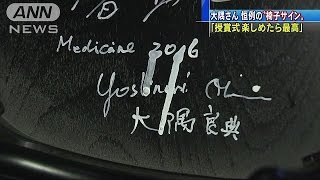 ANN
NEWS
大隅さん 恒例の"椅子サイン"
「授賞式 楽しめたら最高」
Medicine 2016
Yoshinori
大隅良典